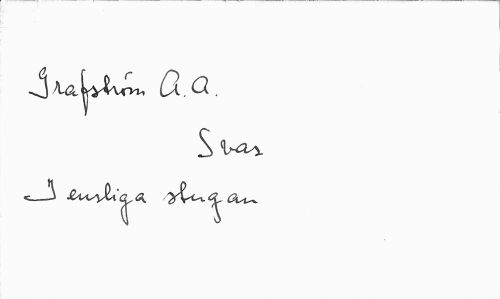 Grafström A.A.
Svar
I ensliga stugan